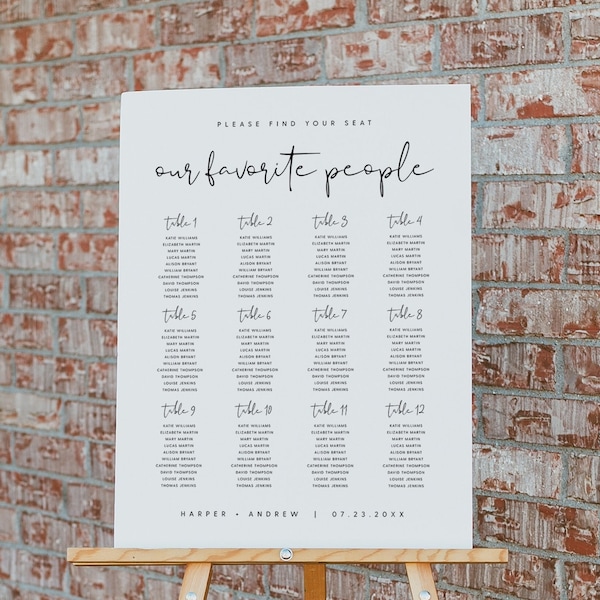 PLEASE FIND YOUR SEAT
our favorite people
table 1
KATIE WILLIAMS
ELIZABETH MARTIN
MARY MARTIN
LUCAS MARTIN
ALISON BRYANT
WILLIAM BRYANT
CATHERINE THOMPSON
DAVID THOMPSON
LOUISE JENKINS
THOMAS JENKINS
table 2
KATIE WILLIAMS
ELIZABETH MARTIN
MARY MARTIN
LUCAS MARTIN
ALISON BRYANT
WILLIAM BRYANT
CATHERINE THOMPSON
DAVID THOMPSON
LOUISE JENKINS
THOMAS JENKINS
table 3
KATIE WILLIAMS
ELIZABETH MARTIN
MARY MARTIN
LUCAS MARTIN
ALISON BRYANT
WILLIAM BRYANT
CATHERINE THOMPSON
DAVID THOMPSON
LOUISE JENKINS
THOMAS JENKINS
table 4
KATIE WILLIAMS
ELIZABETH MARTIN
MARY MARTIN
LUCAS MARTIN
ALISON BRYANT
WILLIAM BRYANT
CATHERINE THOMPSON
DAVID THOMPSON
LOUISE JENKINS
THOMAS JENKINS
table 5
KATIE WILLIAMS
ELIZABETH MARTIN
MARY MARTIN
LUCAS MARTIN
ALISON BRYANT
WILLIAM BRYANT
CATHERINE THOMPSON
DAVID THOMPSON
LOUISE JENKINS
THOMAS JENKINS
table 6
KATIE WILLIAMS
ELIZABETH MARTIN
MARY MARTIN
LUCAS MARTIN
ALISON BRYANT
WILLIAM BRYANT
CATHERINE THOMPSON
DAVID THOMPSON
LOUISE JENKINS
THOMAS JENKINS
table 7
KATIE WILLIAMS
ELIZABETH MARTIN
MARY MARTIN
LUCAS MARTIN
ALISON BRYANT
WILLIAM BRYANT
CATHERINE THOMPSON
DAVID THOMPSON
LOUISE JENKINS
THOMAS JENKINS
table 8
KATIE WILLIAMS
ELIZABETH MARTIN
MARY MARTIN
LUCAS MARTIN
ALISON BRYANT
WILLIAM BRYANT
CATHERINE THOMPSON
DAVID THOMPSON
LOUISE JENKINS
THOMAS JENKINS
table 9
KATIE WILLIAMS
ELIZABETH MARTIN
MARY MARTIN
LUCAS MARTIN
ALISON BRYANT
WILLIAM BRYANT
CATHERINE THOMPSON
DAVID THOMPSON
LOUISE JENKINS
THOMAS JENKINS
table 10
KATIE WILLIAMS
ELIZABETH MARTIN
MARY MARTIN
LUCAS MARTIN
ALISON BRYANT
WILLIAM BRYANT
CATHERINE THOMPSON
DAVID THOMPSON
LOUISE JENKINS
THOMAS JENKINS
table 11
KATIE WILLIAMS
ELIZABETH MARTIN
MARY MARTIN
LUCAS MARTIN
ALISON BRYANT
WILLIAM BRYANT
CATHERINE THOMPSON
DAVID THOMPSON
LOUISE JENKINS
THOMAS JENKINS
table 12
KATIE WILLIAMS
ELIZABETH MARTIN
MARY MARTIN
LUCAS MARTIN
ALISON BRYANT
WILLIAM BRYANT
CATHERINE THOMPSON
DAVID THOMPSON
LOUISE JENKINS
THOMAS JENKINS
HARPER • ANDREW | 07.23.20XX